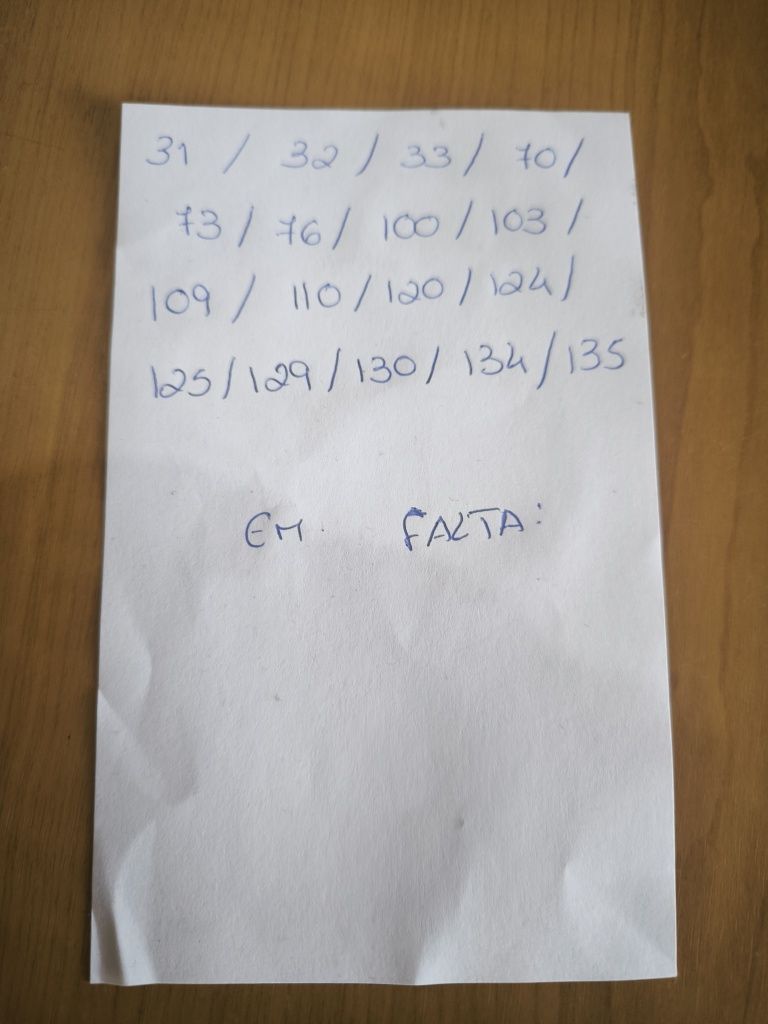 31 / 32 / 33 / 70 /
73 / 76 / 100 / 103 /
109 / 110 / 120 / 124 /
125 / 129 / 130 / 134 / 135
EM FALTA: